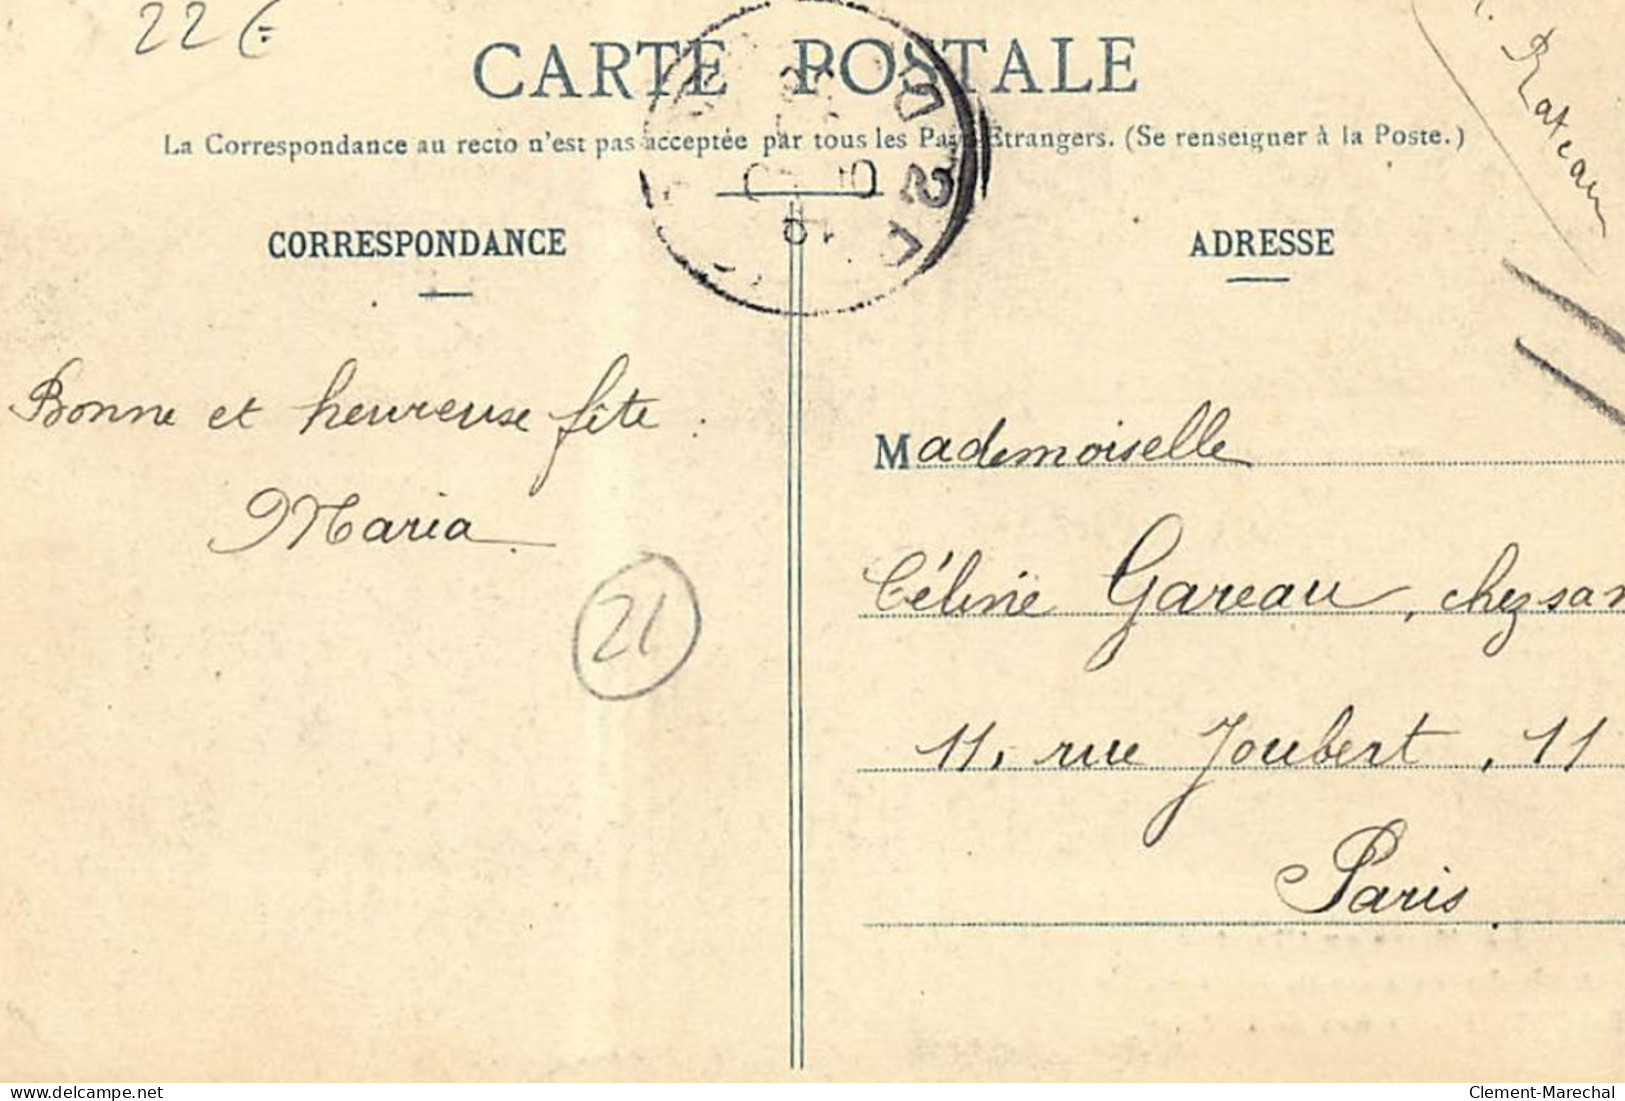 22 €
CARTE POSTALE
Rateau
La Correspondance au recto n'est pas acceptée par tous les Pays Etrangers. (Se renseigner à la Poste.)
CORRESPONDANCE
Bonne et heureuse fête.
Maria
21
ADRESSE
Mademoiselle
Céline Gareau, chez
11, rue Joubert, 11
Paris.
delcampe.net
Clement-Marechal